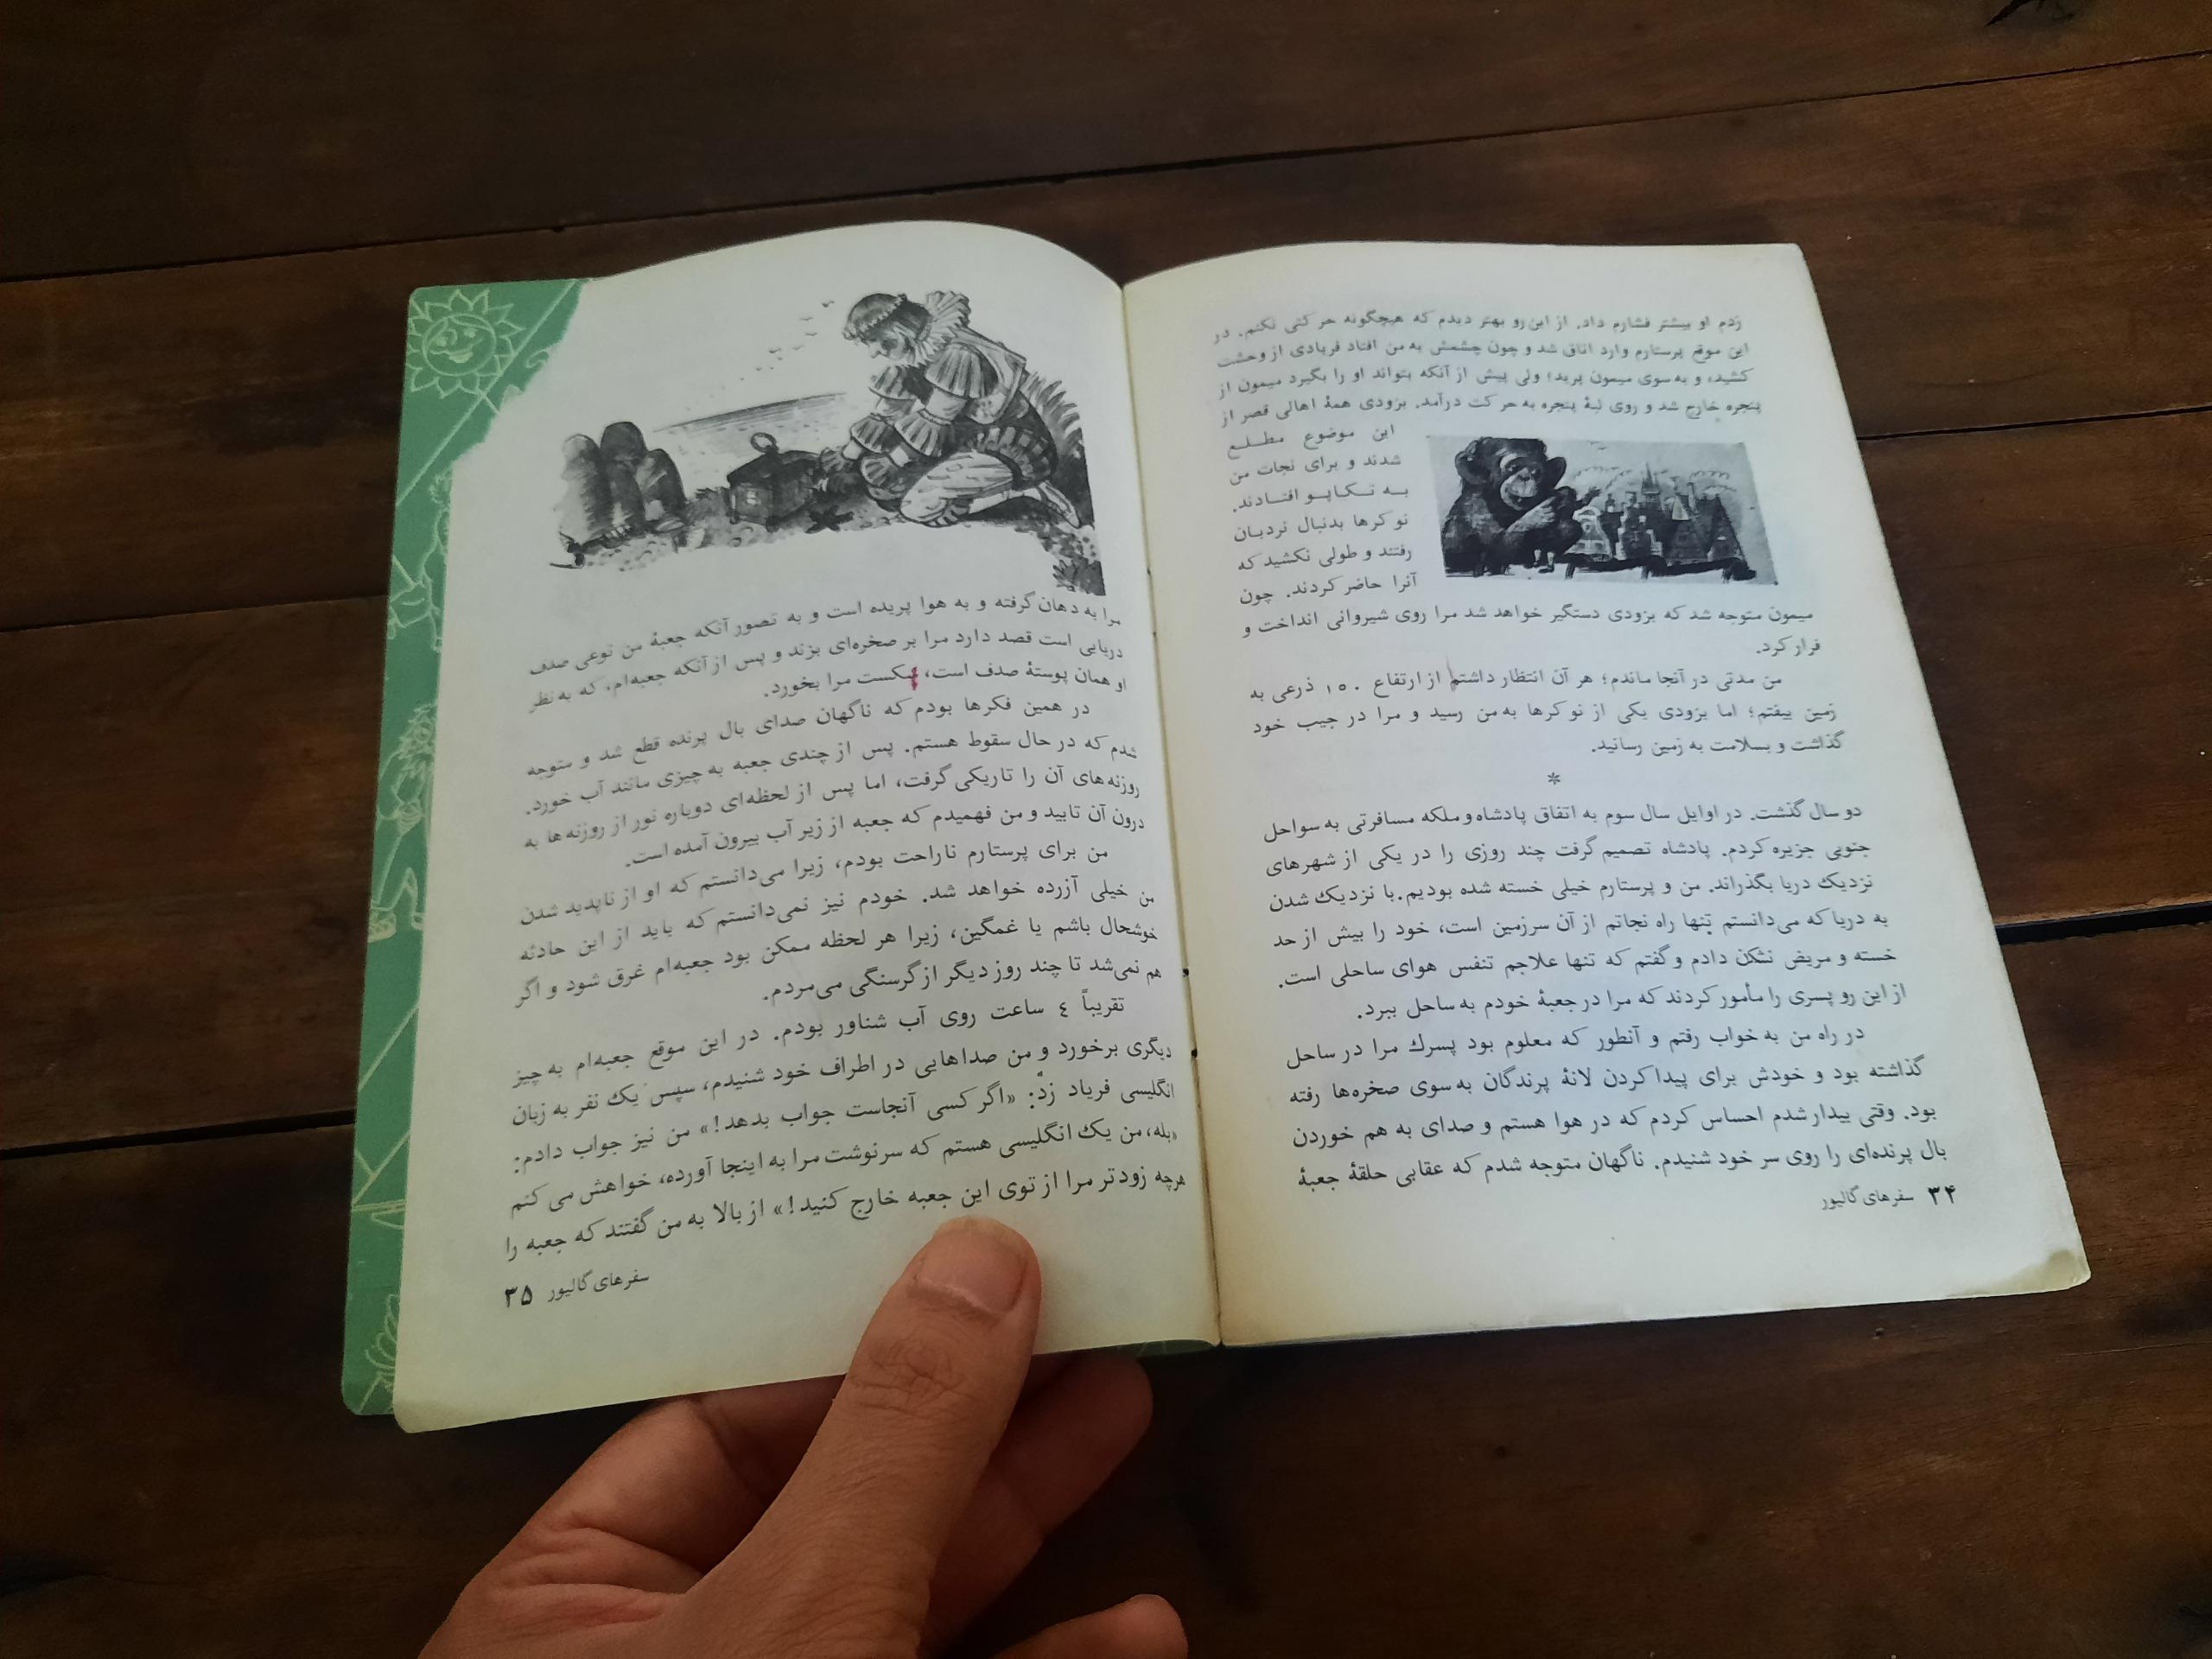 زدم او بیشتر فشارم داد. از این‌رو بهتر دیدم که هیچگونه حرکتی نکنم. در
این موقع پرستارم وارد اتاق شد و چون چشمش به من افتاد فریادی از وحشت
کشید، و به سوی میمون پرید؛ ولی پیش از آنکه بتواند او را بگیرد میمون از
پنجره خارج شد و روی لبهٔ پنجره به حرکت درآمد. بزودی همهٔ اهالی قصر از
این موضوع مطلع
شدند و برای نجات من
به تکاپو افتادند.
نوکرها بدنبال نردبان
رفتند و طولی نکشید که
آنرا حاضر کردند. چون
میمون متوجه شد که بزودی دستگیر خواهد شد مرا روی شیروانی انداخت و
فرار کرد.
من مدتی در آنجا ماندم؛ هر آن انتظار داشتم از ارتفاع ۱۵۰ ذرعی به
زمین بیفتم؛ اما بزودی یکی از نوکرها به من رسید و مرا در جیب خود
گذاشت و بسلامت به زمین رسانید.
*
دو سال گذشت. در اوایل سال سوم به اتفاق پادشاه و ملکه مسافرتی به سواحل
جنوبی جزیره کردم. پادشاه تصمیم گرفت چند روزی را در یکی از شهرهای
نزدیك دریا بگذراند. من و پرستارم خیلی خسته شده بودیم. با نزدیك شدن
به دریا که می‌دانستم تنها راه نجاتم از آن سرزمین است، خود را بیش از حد
خسته و مریض نشان دادم و گفتم که تنها علاجم تنفس هوای ساحلی است.
از این رو پسری را مأمور کردند که مرا در جعبهٔ خودم به ساحل ببرد.
در راه من به خواب رفتم و آنطور که معلوم بود پسرك مرا در ساحل
گذاشته بود و خودش برای پیدا کردن لانهٔ پرندگان به سوی صخره‌ها رفته
بود. وقتی بیدار شدم احساس کردم که در هوا هستم و صدای به هم خوردن
بال پرنده‌ای را روی سر خود شنیدم. ناگهان متوجه شدم که عقابی حلقهٔ جعبهٔ
۳۴ سفرهای گالیور
مرا به دهان گرفته و به هوا پریده است و به تصور آنکه جعبهٔ من نوعی صدف
دریایی است قصد دارد مرا بر صخره‌ای بزند و پس از آنکه جعبه‌ام، که به نظر
او همان پوستهٔ صدف است، شکست مرا بخورد.
در همین فکرها بودم که ناگهان صدای بال پرنده قطع شد و متوجه
شدم که در حال سقوط هستم. پس از چندی جعبه به چیزی مانند آب خورد.
روزنه‌های آن را تاریکی گرفت، اما پس از لحظه‌ای دوباره نور از روزنه‌ها به
درون آن تابید و من فهمیدم که جعبه از زیر آب بیرون آمده است.
من برای پرستارم ناراحت بودم، زیرا می‌دانستم که او از ناپدید شدن
من خیلی آزرده خواهد شد. خودم نیز نمی‌دانستم که باید از این حادثه
خوشحال باشم یا غمگین، زیرا هر لحظه ممکن بود جعبه‌ام غرق شود و اگر
هم نمی‌شد تا چند روز دیگر از گرسنگی می‌مردم.
تقریباً ٤ ساعت روی آب شناور بودم. در این موقع جعبه‌ام به چیز
دیگری برخورد و من صداهایی در اطراف خود شنیدم، سپس یك نفر به زبان
انگلیسی فریاد زد: «اگر کسی آنجاست جواب بدهد!» من نیز جواب دادم:
«بله، من یك انگلیسی هستم که سرنوشت مرا به اینجا آورده، خواهش می‌کنم
هرچه زودتر مرا از توی این جعبه خارج کنید!» از بالا به من گفتند که جعبه را
سفرهای گالیور ۳۵